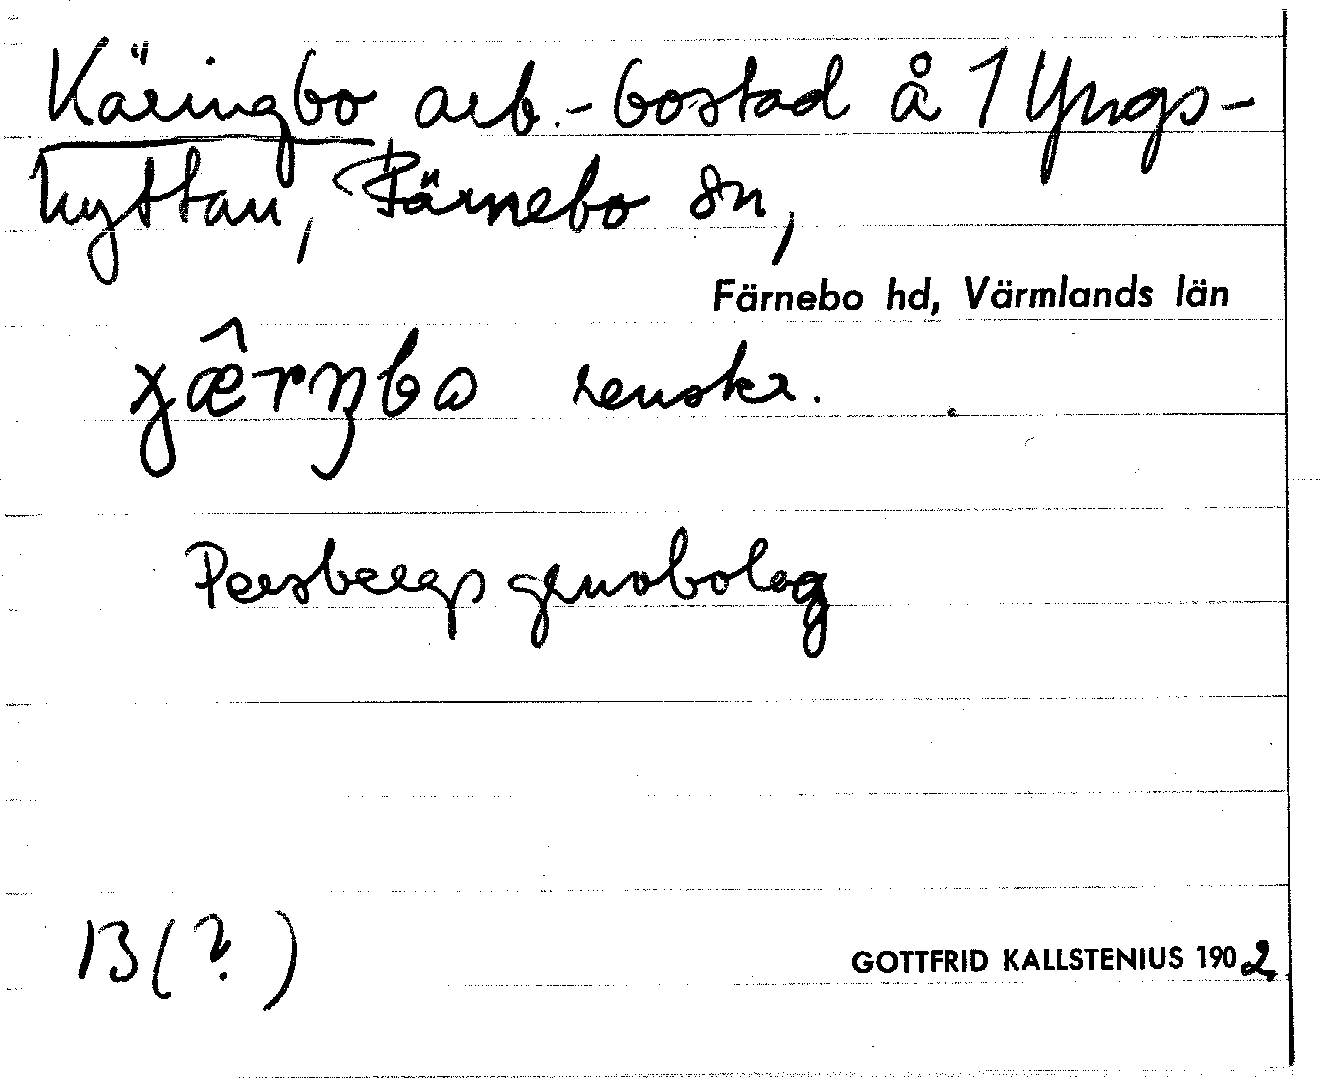 Käringbo arb.-bostad å 1 Yngs-
hyttan, Färnebo sn,
Färnebo hd, Värmlands län
renskr.
Persbergs gruvbolag
B(?)
GOTTFRID KALLSTENIUS 1902